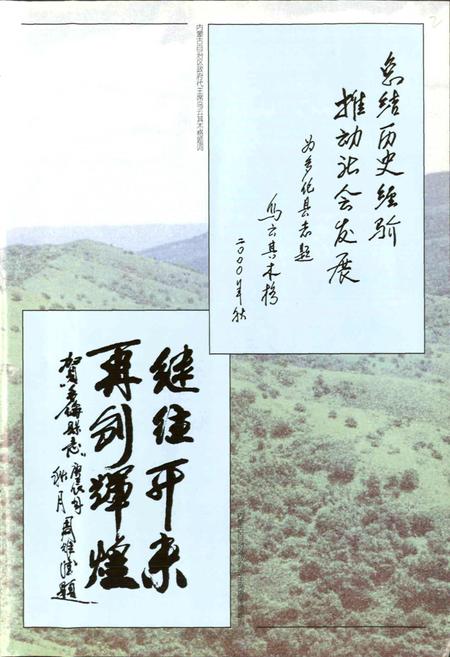 总结历史经验
推动社会发展
为多伦县志题
乌云其木格
二〇〇〇年秋
内蒙古自治区政府代主席乌云其木格题词
继往开来
再创辉煌
贺《多伦县志》
秋月 周维德题